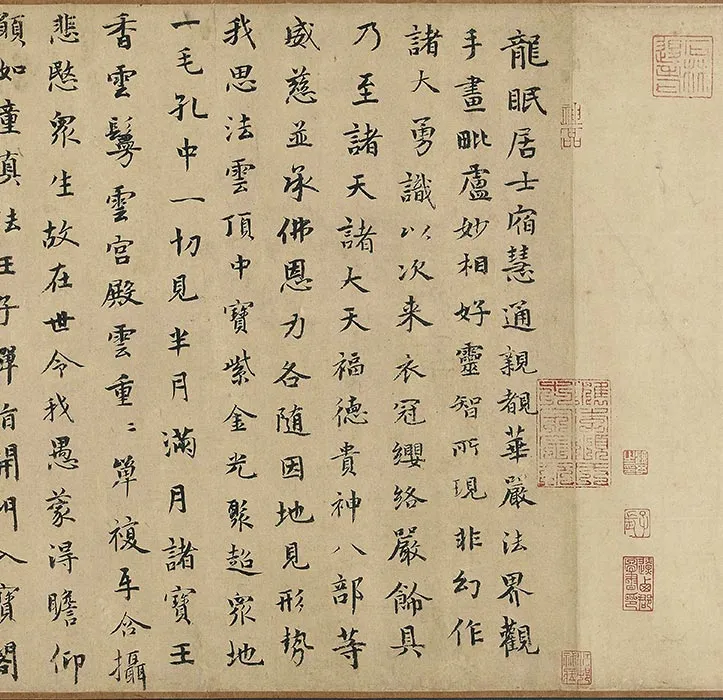 龍眠居士宿慧通親覩華嚴法界觀
手畫毗盧妙相好靈智所現非幻作
諸大勇識以次来衣冠纓絡嚴飾具
乃至諸天諸大天福德貴神八部等
威慈並承佛恩力各隨因地見形勢
我思法雲頂中寶紫金光聚超衆地
一毛孔中一切見半月滿月諸寶王
香雲鬘雲宮殿雲重〻單複互含攝
悲愍衆生故在世令我愚蒙得瞻仰
願如童真法王子彈指開門入寶閣